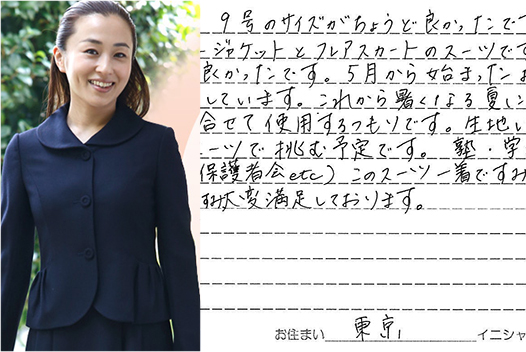 9号のサイズがちょうど良かったで
ージャケットとフレアスカートのスーツでで
良かったです。5月から始まったお
しています。これから暑くなる夏に
合せて使用するつもりです。生地し
ーツで挑む予定です。塾・学
保護者会etc)このスーツ一着ですみ
大変満足しております。
お住まい 東京 イニシャ